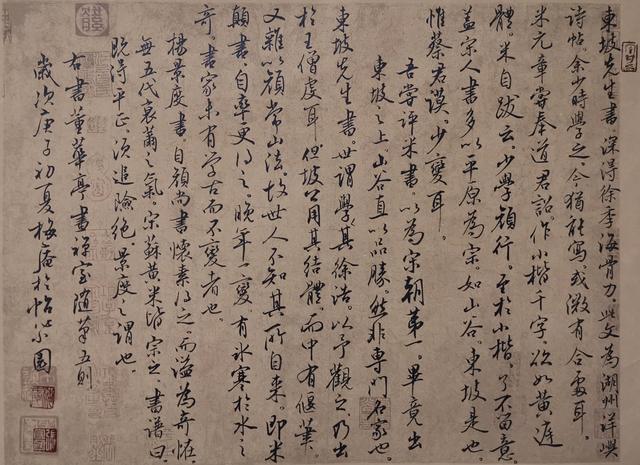 東坡先生書。深得徐季海骨力。此文為湖州洋嶼
詩帖。余少時學之。今猶能寫。或微有合處耳。
米元章嘗奉道君詔。作小楷千字。欲如黃庭
體。米自跋云。少學顏行。至於小楷。了不留意
蓋宋人書多以平原為宗。如山谷。東坡是也。
惟蔡君謨。少變耳。
吾嘗評米書。以為宋朝第一。畢竟出
東坡之上。山谷直以品勝。然非專門名家也。
東坡先生書。世謂學其徐浩。以予觀之。乃出
於王僧虔耳。但坡公用其結體。而中有偃筆。
又雜以顏常山法。故世人不知其所自來。即米
顛書自率更得之。晚年一變。有冰寒於水之
奇。書家未有學古而不變者也。
楊景度書。自顏尚書懷素得之。而溢為奇怪。
無五代衰薾之氣。宋蘇黃米皆宗之。書譜曰
既得平正。須追險絕。景度之謂也。
右書董華亭畫禪室隨筆五則
歲次庚子初夏梅庵於怡園